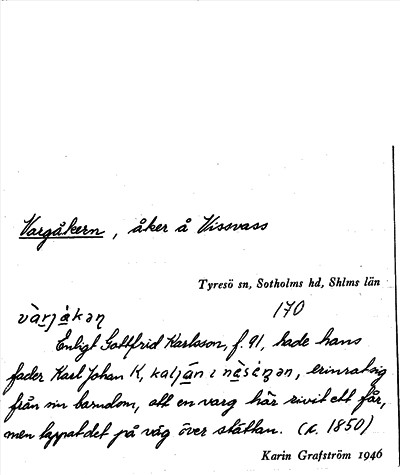 Vargåkern, åker å Vissvass
Tyresö sn, Sotholms hd, Shlms län
170
vàrjá̀kəɳ
Enligt Gottfrid Karlsson, f. 91, hade hans
fader Karl Johan K, erinrat sig
från sin barndom, att en varg här rivit ett får,
men tappat det på väg över slåttan. (c. 1850)
Karin Grafström 1946